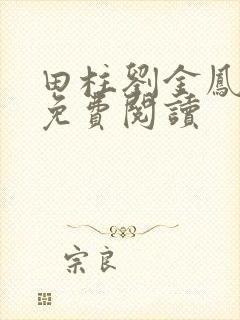 田柱劉金鳳
免費閱讀
宗良